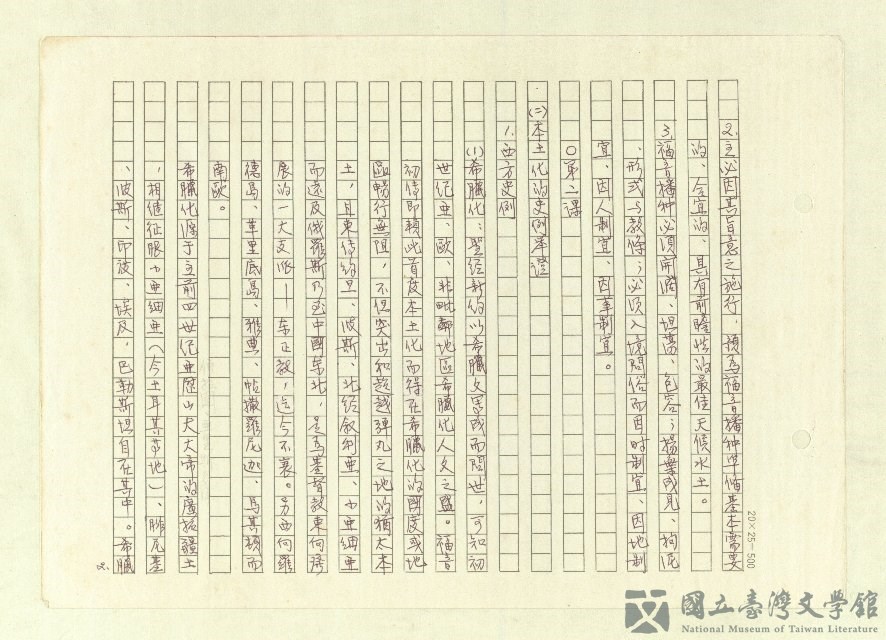 2.主必因其旨意之施行，預為福音播種準備基本需要
的、合宜的、具有前瞻性的最佳天候水土。
3.福音播種必須開濶、坦蕩、包容；揚棄成見、拘泥
、形式与教條；必須入境問俗而因时制宜、因地制
宜、因人制宜、因革制宜。
○第二課
(二)本土化的史例举證
1.西方史例
(1)希臘化：聖经新約以希臘文寫成而問世，可知初
世纪亜、欧、非毗鄰地區希臘化人文之盛。福音
初傳即賴此首度本土化而得在希臘化的國度或地
區暢行無阻，不但突出和超越彈丸之地的猶太本
土，且東傳約旦、波斯、北经叙利亜、小亜細亜
而遠及俄羅斯乃至中國东北，是為基督教東向
展的一大支派——东正教，迄今不衰。另西向羅
德島、革里底島、雅典、帖撒羅尼迦、馬其頓而
南欧。
希臘化源于主前四世纪亜歷山大大帝的廣拓疆土
，相继征服小亜細亜（今土耳其等地）、腓尼基
、波斯、印度、埃及，巴勒斯坦自在其中。希臘
2.
20×25=500
國立臺灣文學館
National Museum of Taiwan Literature